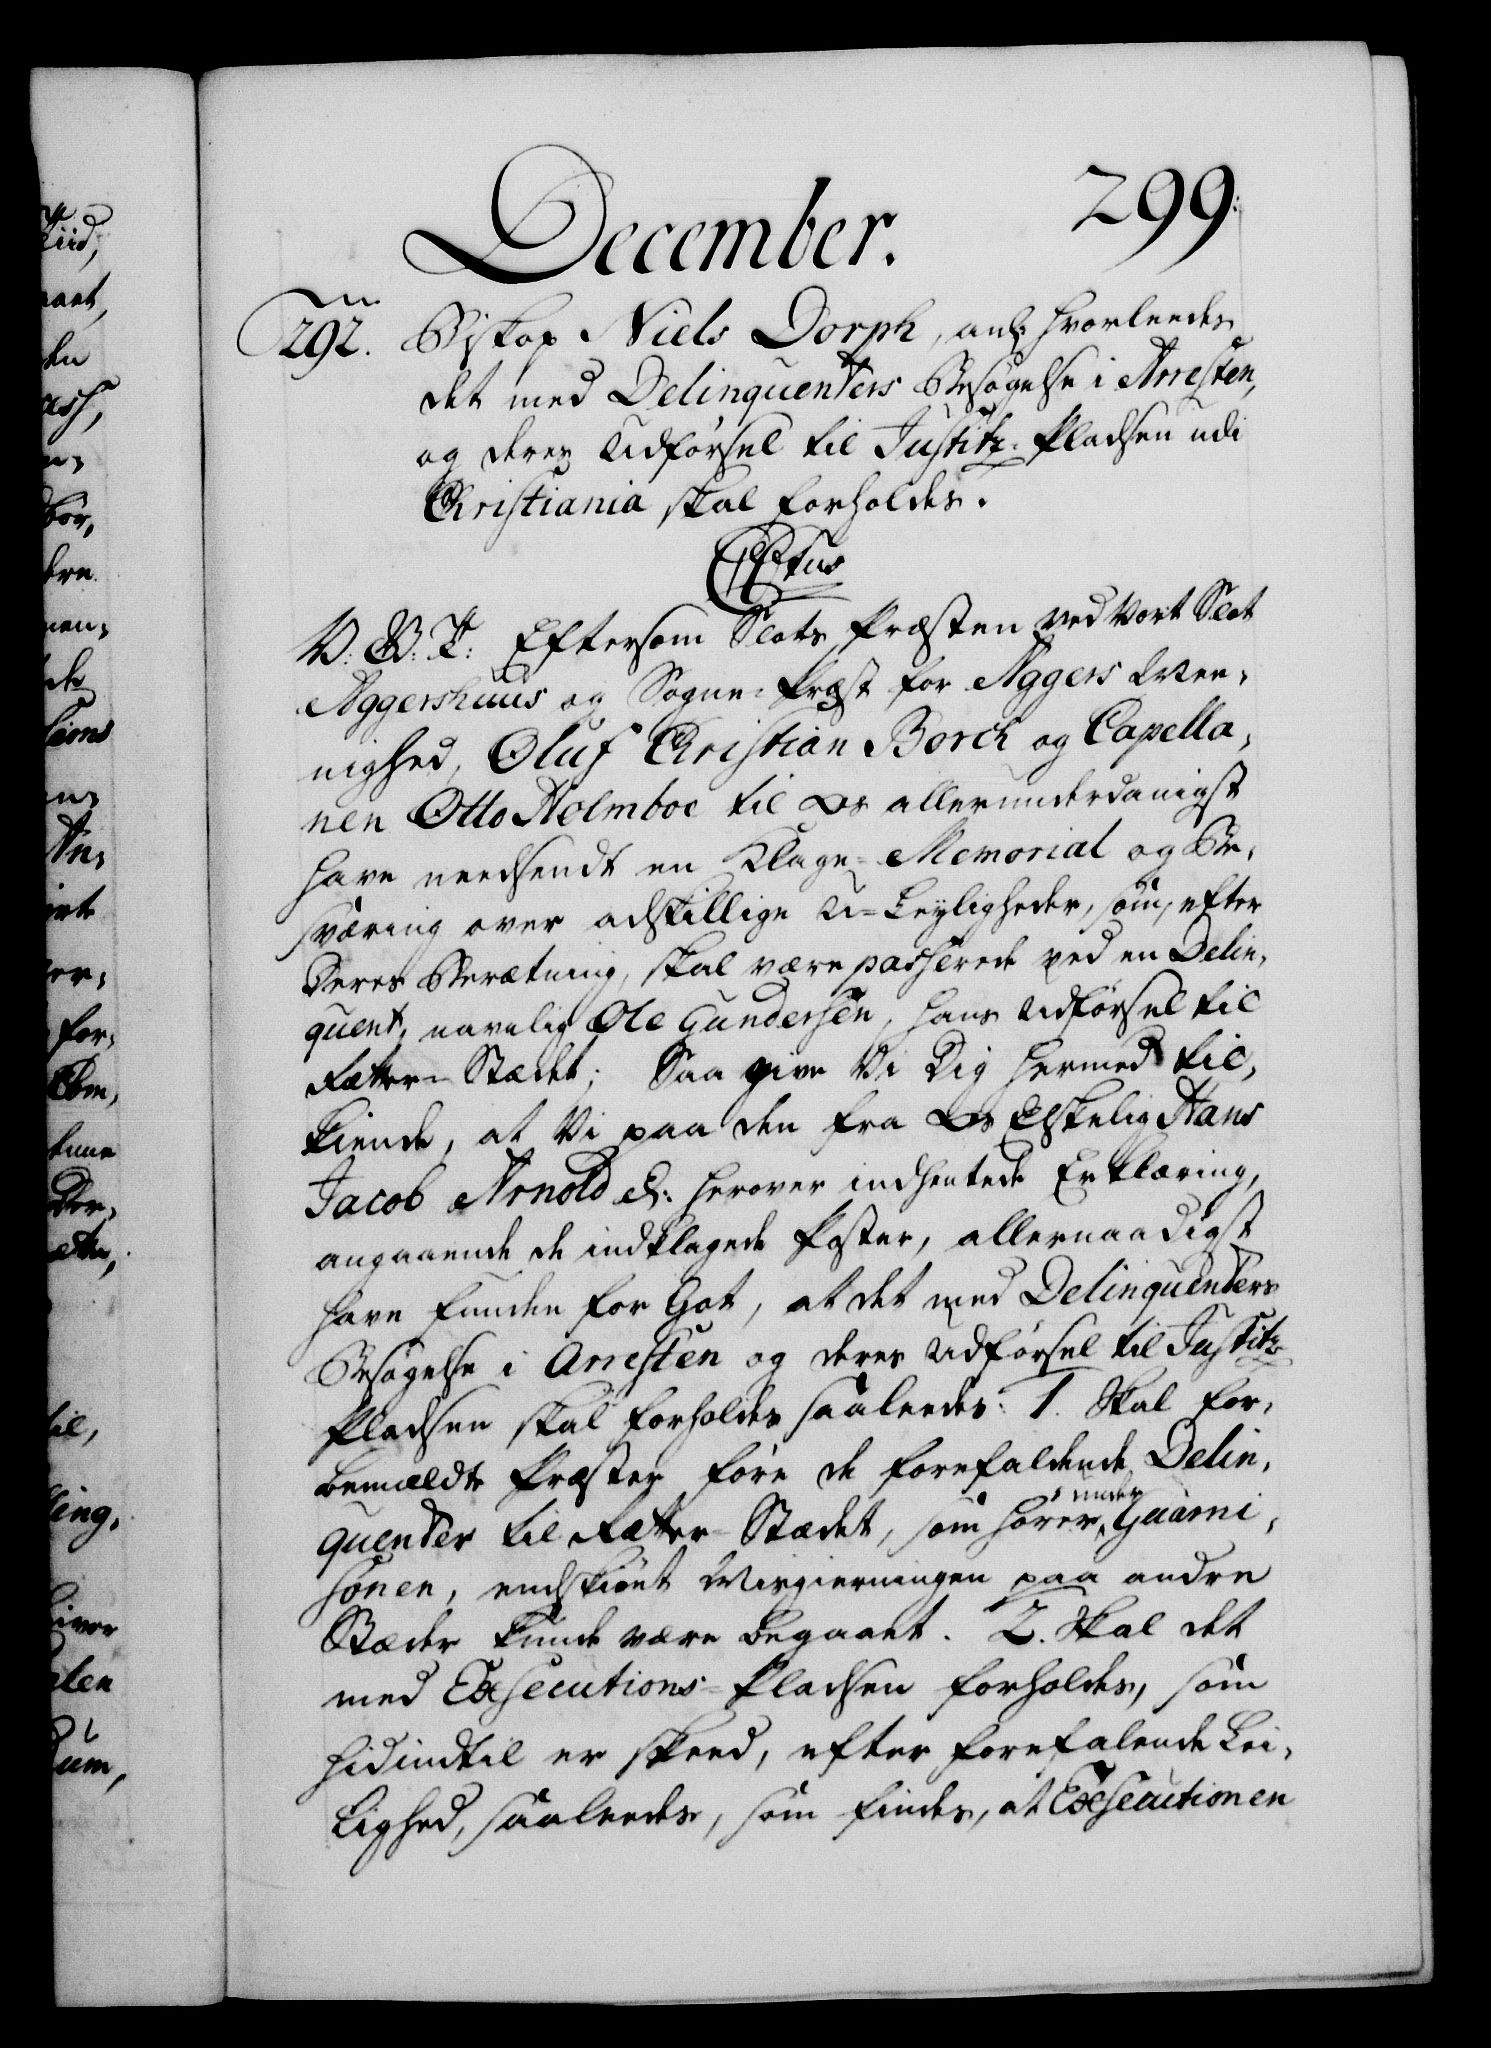 December.
299.
292.
Biskop Niels Dorph, anl: hvorleedes
det med Delinquenters Besøgelse i Arresten,
og deres Udførsel til Justitz-Pladsen udi
Christiania skal forholdes.
V. G. T: Eftersom Slots Præsten ved Vort Slot
Aggershuus og Sogne-Præst for Aggers Mee-
nighed, Oluf Christian Borch og Capella-
nen Otto Holmboe til Os allerunderdanigst
have needsendt en Klage-Memorial og Be-
sværing over adskillige U-Leyligheder, som, efter
Deres Beretning, skal være passerede ved en Delin-
quent, navnlig Ole Gundersen, hans Udførsel til
Retter-Stædet; Saa give Vi Dig hermed til-
kiende, at Vi paa den fra Os Elskelig Hans
Jacob Arnold &: herover indhentede Erklæring,
angaaende de indklagede Poster, allernaadigst
have funden for Got, at det med Delinquenters
Besøgelse i Arresten og deres Udførsel til Justitz-
Pladsen skal forholdes saaleedes: 1. Skal for-
bemældte Præster føre de forefaldende Delin-
quenter til Retter-Stædet, som hører under Guarni-
sonen, endskiønt Misgierningen paa andre
Stæder kunde være begaaet. 2. Skal det
med Executions-Pladsen forholdes, som
hidindtil er skeed, efter forefalende Lei-
lighed, saaleedes, som findes, at Executionen